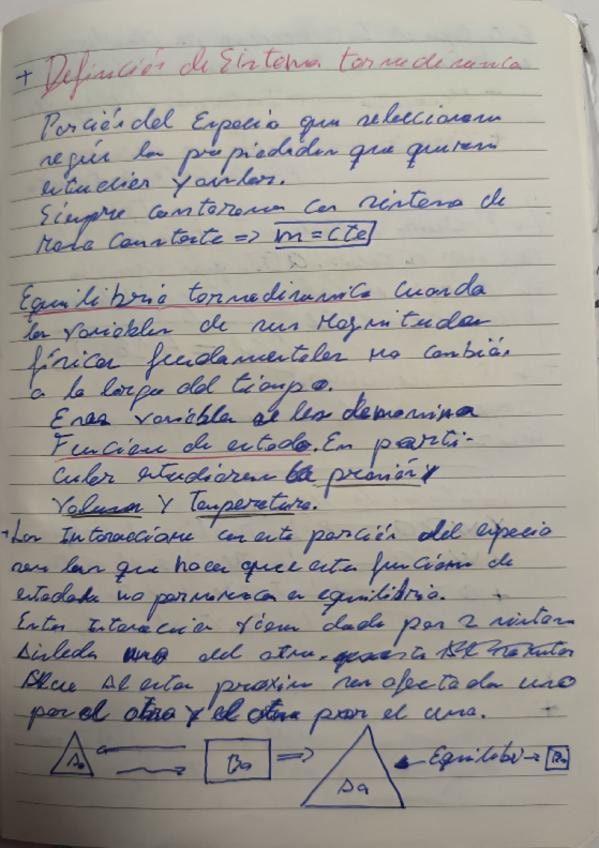 + Definición de Sistema termodinamica
Porción del Espacio que seleccionam
según las propiedades que queram
estudier y
Siempre contarema con sistema de
masa constate => m = cte
Equilibrio termodinamica cuando
las variables de sus Magnitudes
físicas fundamentales no cambian
a lo largo del tiempo.
Enas variables se les denomina
Funcion de estado. En parti-
cular estudiarem la presión y
Volumen y Temperatura.
Las Interaccione con esta porción del espacio
son las que hacen que esta funcione de
estado no permanezca en equilibrio.
Estas Interaccion vien dada por 2 sistem
aislada uno del otro.
que al estar proxim son afectada uno
por el otro y el otro por el uno.
Aa Ba => Aa Equilibri → Ba